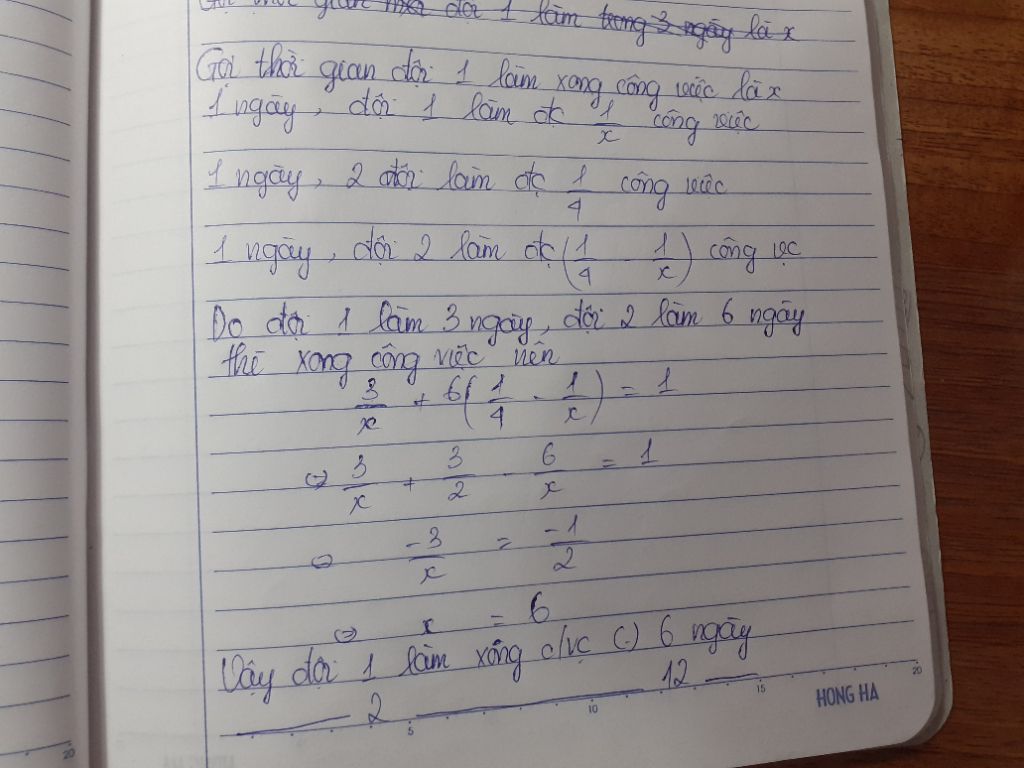 Gọi thời gian đội 1 làm trong 3 ngày là x
Gọi thời gian đội 1 làm xong công việc là x
1 ngày, đội 1 làm đc 1/x công việc
1 ngày, 2 đội làm đc 1/4 công việc
1 ngày, đội 2 làm đc (1/4 - 1/x) công vc
Do đội 1 làm 3 ngày, đội 2 làm 6 ngày
thì xong công việc nên
3/x + 6(1/4 - 1/x) = 1
⇔ 3/x + 3/2 - 6/x = 1
⇔ -3/x = -1/2
⇔ x = 6
Vậy đội 1 làm xong c/vc (-) 6 ngày
——— 2 ——————— 12 ——
5 10 15 20
HONG HA
20